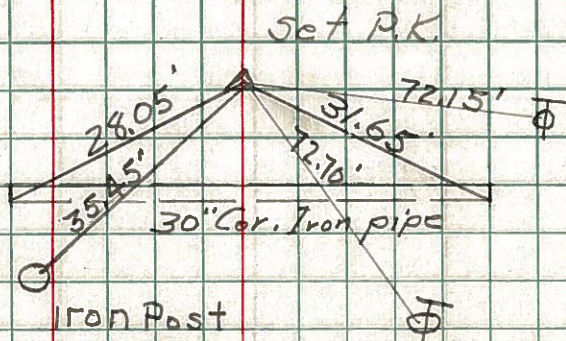 set P.K.
28.05'
72.15'
31.65'
72.70'
35.45'
30" Cor. Iron pipe
Iron Post